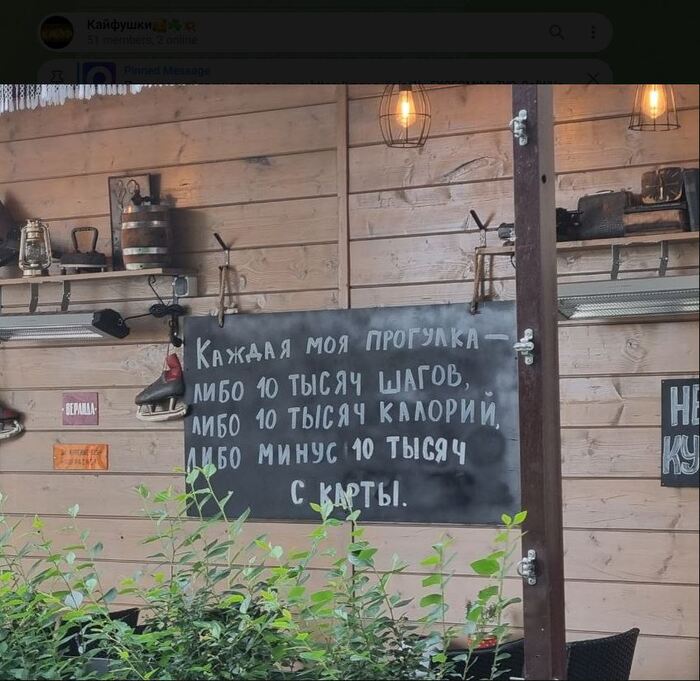 Кайфушки
51 members, 2 online
Pinned Message
Каждая моя прогулка —
либо 10 тысяч шагов,
либо 10 тысяч калорий,
либо минус 10 тысяч
с карты.
ВЕРАНДА
НЕ
КУ